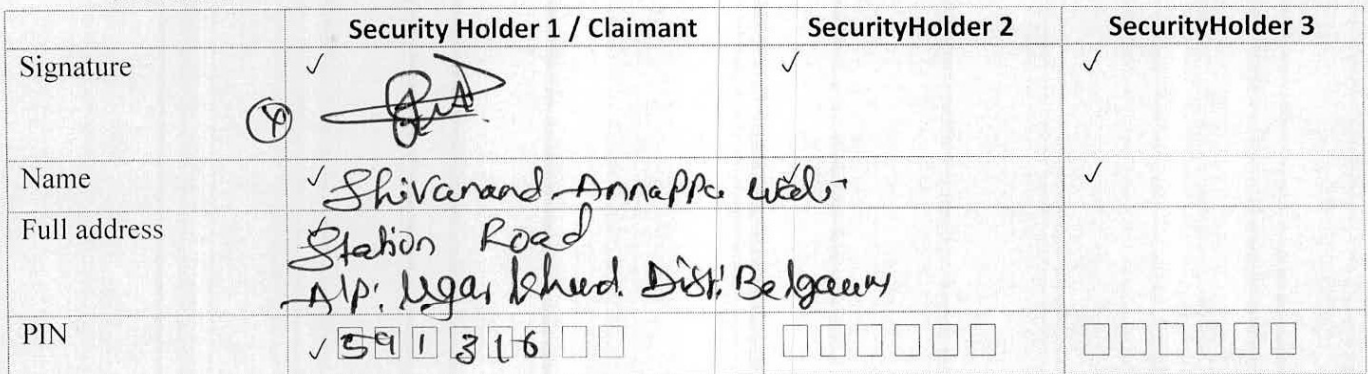 Security Holder 1 / Claimant SecurityHolder 2 SecurityHolder 3
Signature ✓ ✓ ✓
Name ✓ Shivanand Annappa ✓
Full address Station Road
A/P: Ugar Khurd. Dist: Belgaum
PIN ✓ 591316